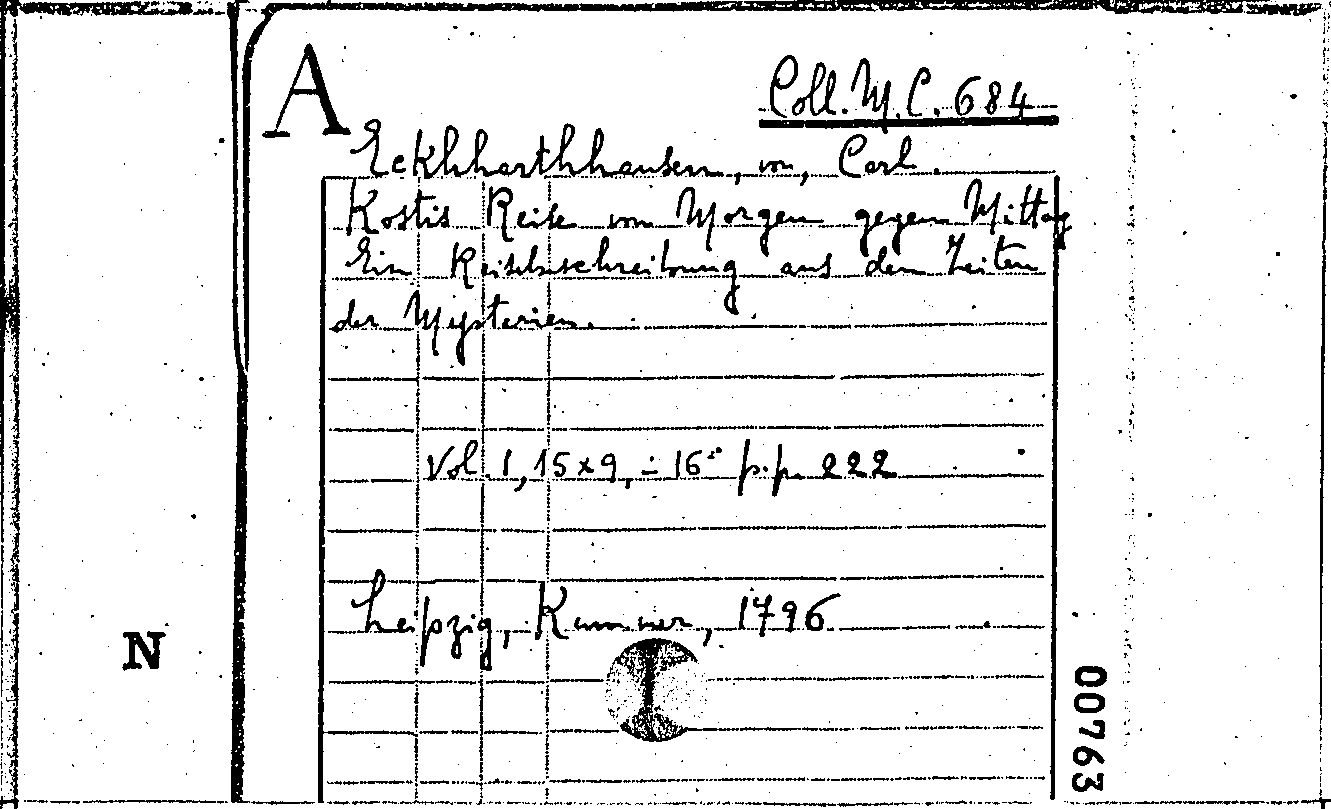 A
Coll. M. C. 684
Eckhharthhausen, von, Carl.
Kostis Reise von Morgen gegen Mittag
Ein Reisebeschreibung aus den Zeiten
der Mysterien.
Vol. 1, 15x9, = 16° p.p. 222
Leipzig, Kummer, 1796
N
00763